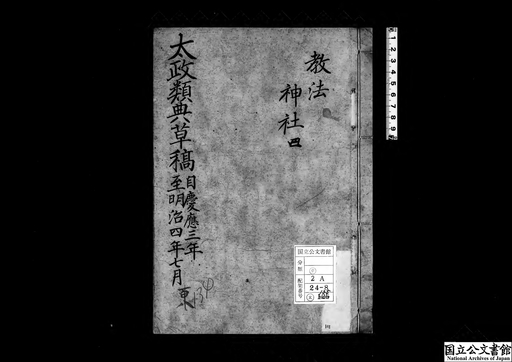 教法
神社 四
太政類典草稿
自慶應三年
至明治四年七月
国立公文書館
分類
配架番号
2 A
24-8
国立公文書館
National Archives of Japan